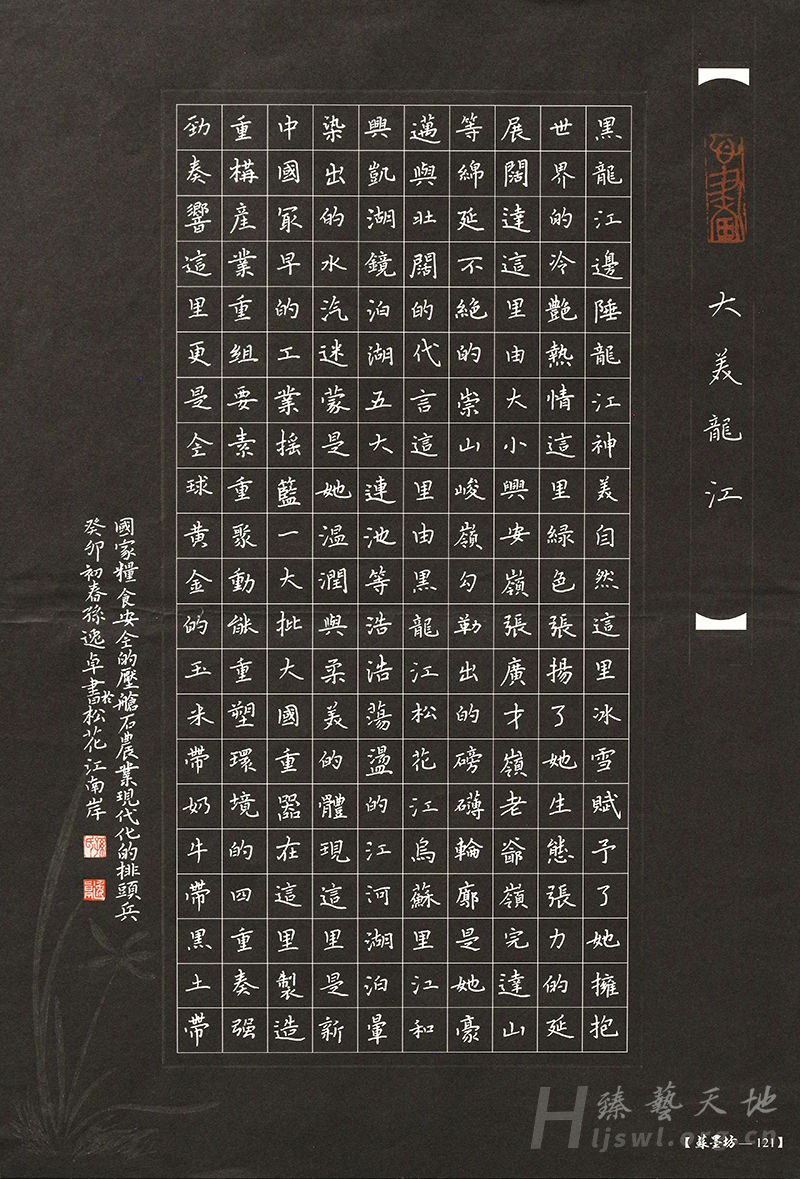 大美龍江
黑龍江邊陲龍江神美自然這里冰雪賦予了她擁抱
世界的冷艷熱情這里綠色張揚了她生態張力的延
展闊達這里由大小興安嶺張廣才嶺老爺嶺完達山
等綿延不絕的崇山峻嶺勾勒出的磅礴輪廓是她豪
邁與壯闊的代言這里由黑龍江松花江烏蘇里江和
興凱湖鏡泊湖五大連池等浩浩蕩盪的江河湖泊暈
染出的水汽迷蒙是她温潤與柔美的體現這里是新
中國冣早的工業摇籃一大批大國重器在這里製造
重構産業重組要素重聚動能重塑環境的四重奏强
勁奏響這里更是全球黄金的玉米帶奶牛帶黑土帶
國家糧食安全的壓艙石農業現代化的排頭兵
癸卯初春孫逸卓書於松花江南岸
臻藝天地
Hljswl.org.cn
【蘇墨坊—121】